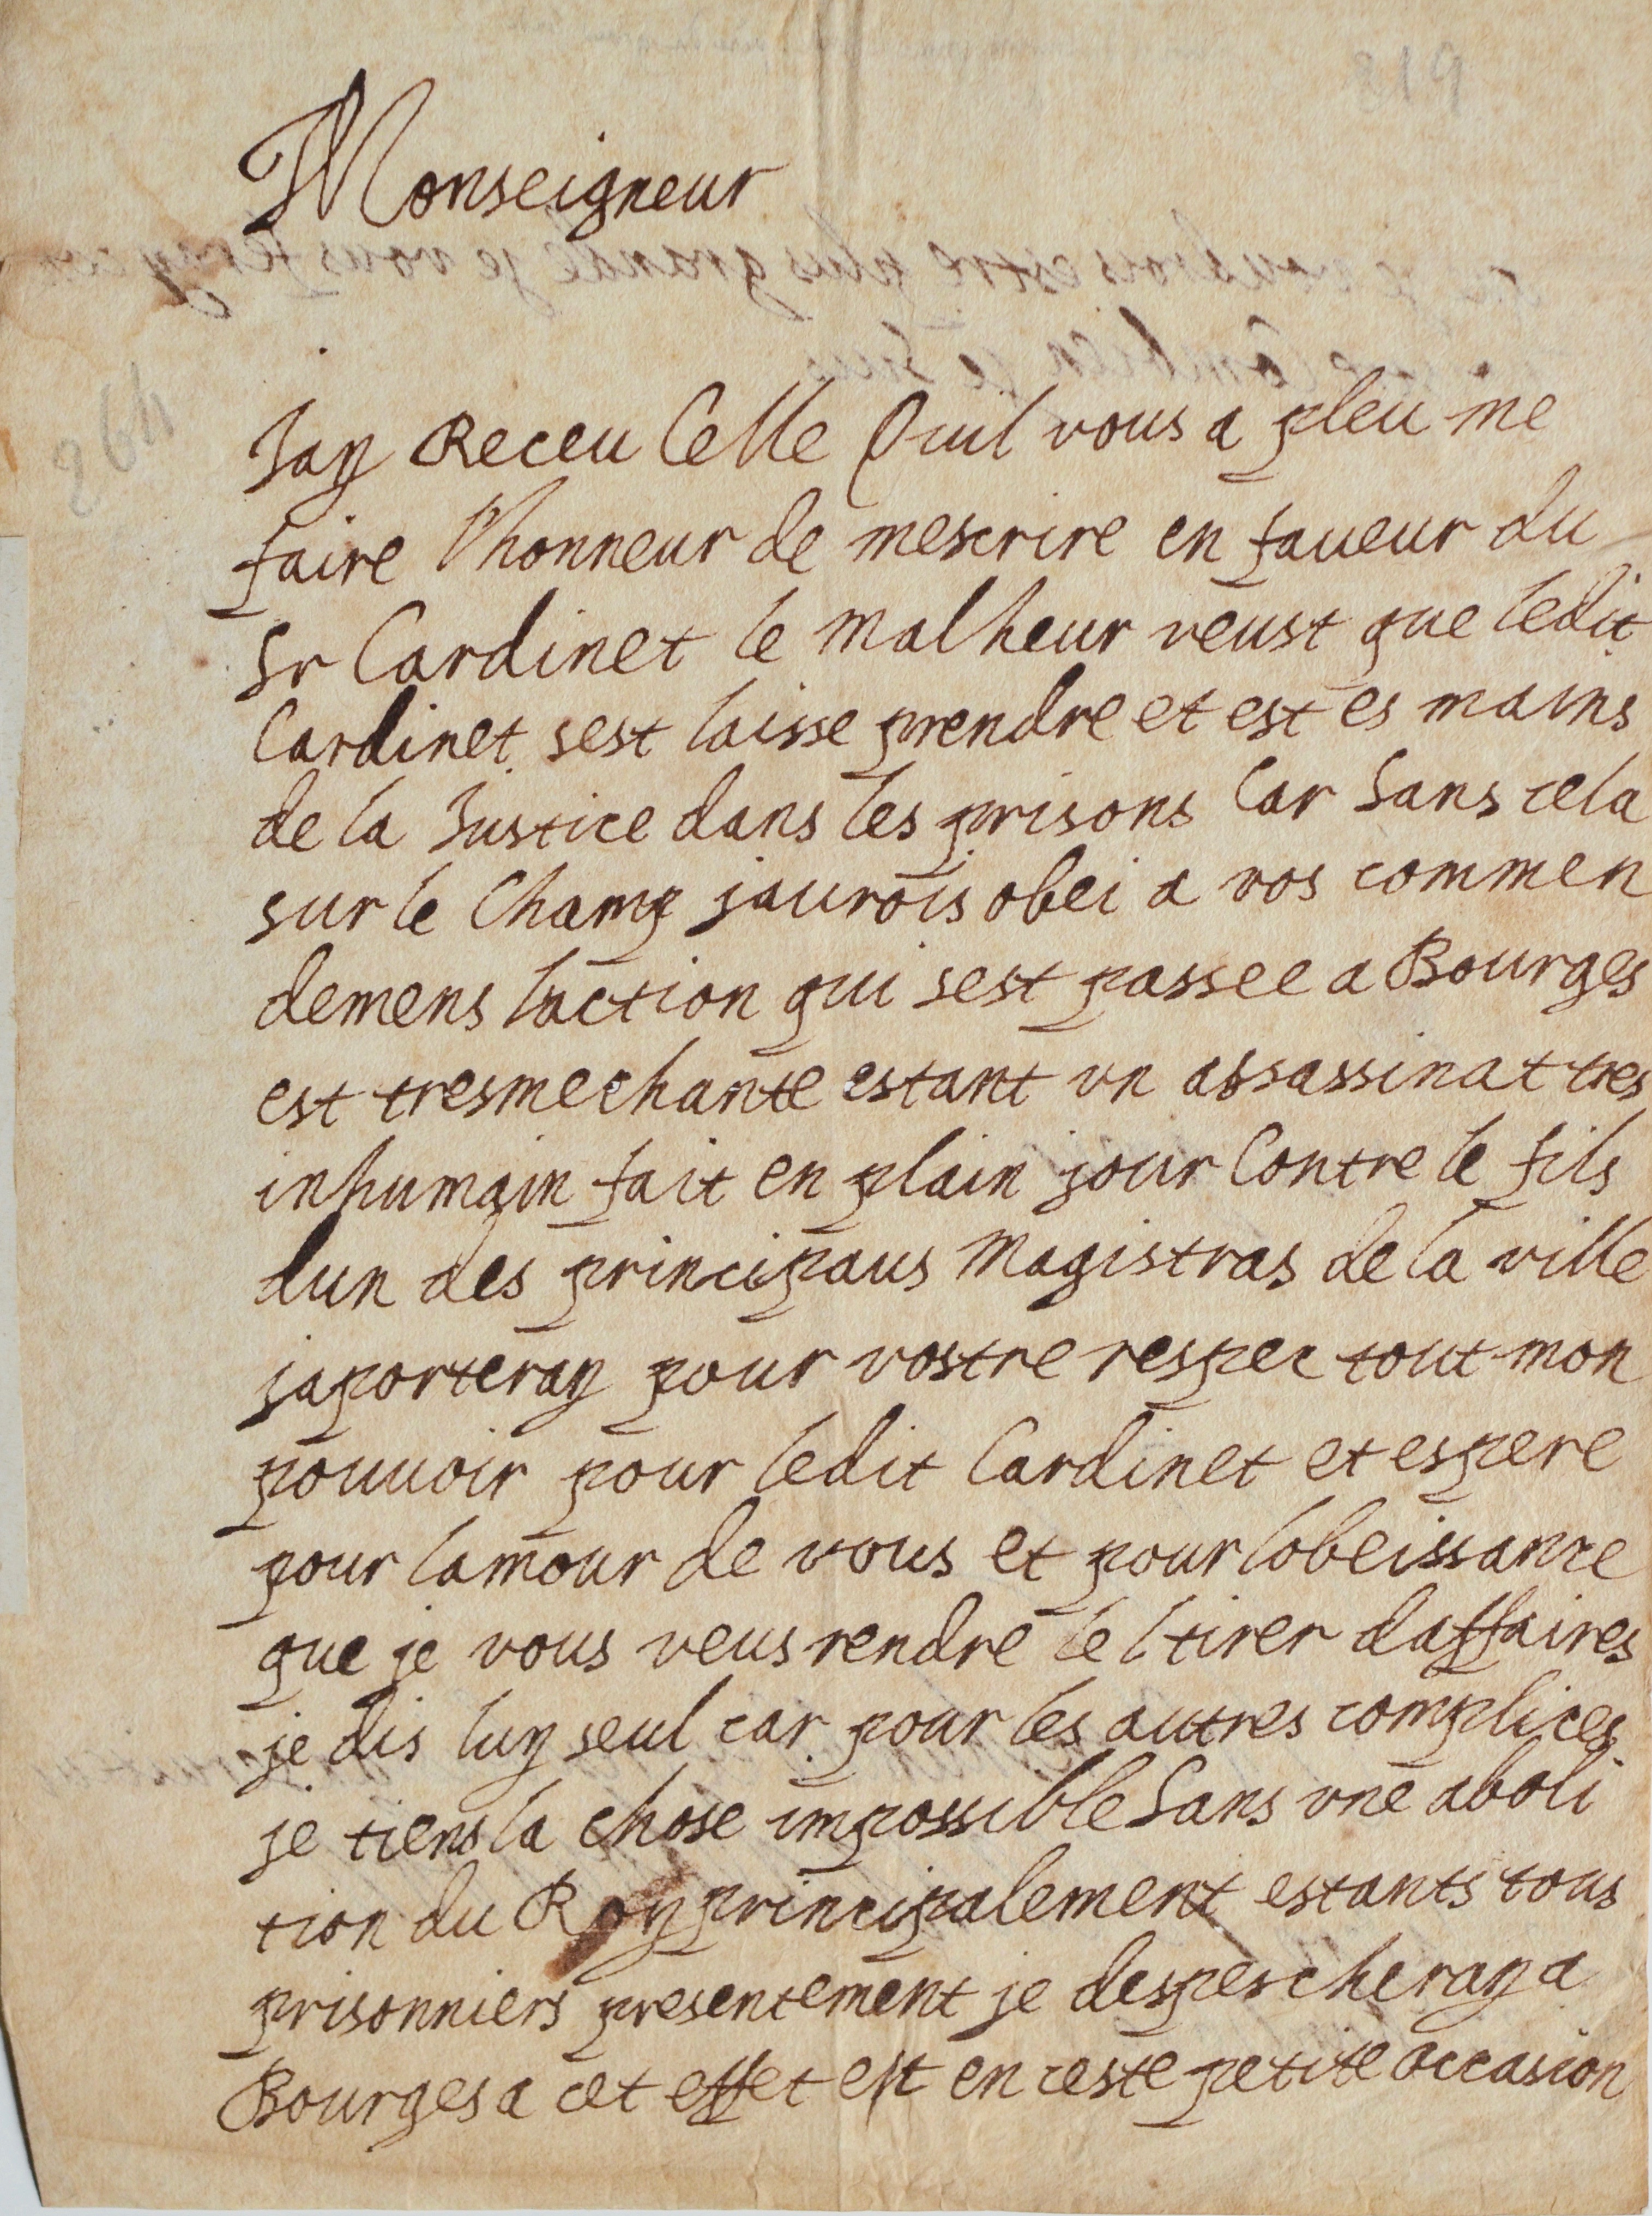 Monseigneur
Jay Receu Celle Quil vous a pleu me
faire l'honneur de mescrire en faueur du
Sr Cardinet le malheur veust que ledit
Cardinet sest laisse prendre et est es mains
de la Justice dans les prisons Car Sans cela
sur le Champ jaurois obei a vos commen
demens laction qui sest passee a Bourges
est tresmechante estant vn assassinat tres
inhumain fait en plain jour Contre le fils
dun des principaus Magistras de la ville
japorteray pour vostre respec tout mon
pouuoir pour ledit Cardinet et espere
pour lamour de vous et pour lobeissance
que je vous veus rendre le tirer daffaires
je dis luy seul car pour les autres complices
je tiens la chose impossible Sans vne aboli
tion du Roy principalement estants tous
prisonniers presentement je despescheray a
Bourges a cet effet est en ceste petite occasion